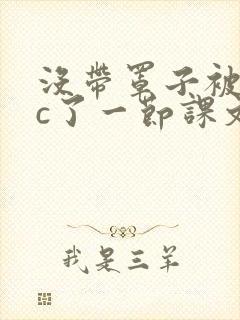 没带罩子被
c了一节课文
我是三羊